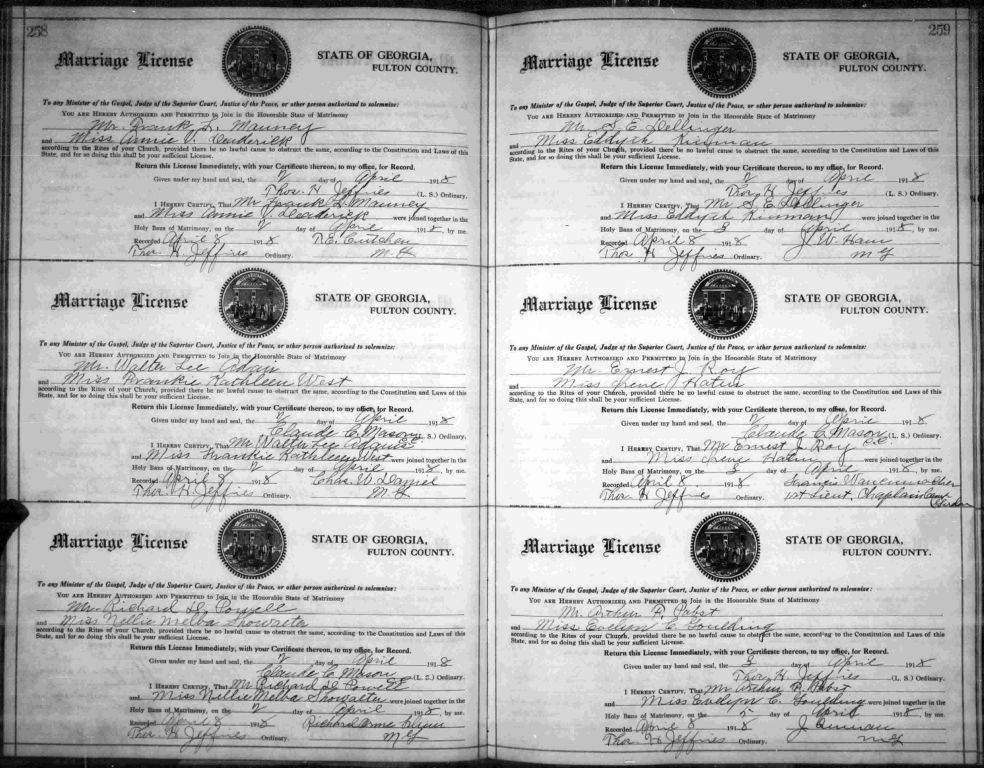 258
Marriage License
STATE OF GEORGIA,
FULTON COUNTY.
To any Minister of the Gospel, Judge of the Superior Court, Justice of the Peace, or other person authorized to solemnize:
YOU ARE HEREBY AUTHORIZED AND PERMITTED to Join in the Honorable State of Matrimony
Mr. Frank L. Mauney
and Miss Annie V. Deaderick
according to the Rites of your Church, provided there be no lawful cause to obstruct the same, according to the Constitution and Laws of this
State, and for so doing this shall be your sufficient License.
Return this License Immediately, with your Certificate thereon, to my office, for Record.
Given under my hand and seal, the 2 day of April 1918
Thos. H. Jeffries (L. S.) Ordinary.
I HEREBY CERTIFY, That Mr Frank L. Mauney
and Miss Annie V. Deaderick were joined together in the
Holy Bans of Matrimony, on the 2 day of April 1918, by me.
Recorded April 8 1918
Thos H. Jeffries Ordinary. M. G
Marriage License
STATE OF GEORGIA,
FULTON COUNTY.
To any Minister of the Gospel, Judge of the Superior Court, Justice of the Peace, or other person authorized to solemnize:
YOU ARE HEREBY AUTHORIZED AND PERMITTED to Join in the Honorable State of Matrimony
Mr. Walter Lee Adair
and Miss Frankie Kathleen West
according to the Rites of your Church, provided there be no lawful cause to obstruct the same, according to the Constitution and Laws of this
State, and for so doing this shall be your sufficient License.
Return this License Immediately, with your Certificate thereon, to my office, for Record.
Given under my hand and seal, the 2 day of April 1918
Claude C. Mason (L. S.) Ordinary.
I HEREBY CERTIFY, That Mr Walter Lee Adair
and Miss Frankie Kathleen West were joined together in the
Holy Bans of Matrimony, on the 2 day of April 1918, by me.
Recorded April 8 1918 Chas. W. Daniel
Thos. H. Jeffries Ordinary. M. G
Marriage License
STATE OF GEORGIA,
FULTON COUNTY.
To any Minister of the Gospel, Judge of the Superior Court, Justice of the Peace, or other person authorized to solemnize:
YOU ARE HEREBY AUTHORIZED AND PERMITTED to Join in the Honorable State of Matrimony
Mr. Richard D. Powell
and Miss Nellie Melba Showalter
according to the Rites of your Church, provided there be no lawful cause to obstruct the same, according to the Constitution and Laws of this
State, and for so doing this shall be your sufficient License.
Return this License Immediately, with your Certificate thereon, to my office, for Record.
Given under my hand and seal, the 2 day of April 1918
Claude C. Mason (L. S.) Ordinary.
I HEREBY CERTIFY, That Mr Richard D Powell
and Miss Nellie Melba Showalter were joined together in the
Holy Bans of Matrimony, on the 2 day of April 1918, by me.
Recorded April 8 1918 Richard Orme
Thos. H. Jeffries Ordinary. M G
259
Marriage License
STATE OF GEORGIA,
FULTON COUNTY.
To any Minister of the Gospel, Judge of the Superior Court, Justice of the Peace, or other person authorized to solemnize:
YOU ARE HEREBY AUTHORIZED AND PERMITTED to Join in the Honorable State of Matrimony
Mr. S. E. Dellinger
and Miss Eddyth Kinman
according to the Rites of your Church, provided there be no lawful cause to obstruct the same, according to the Constitution and Laws of this
State, and for so doing this shall be your sufficient License.
Return this License Immediately, with your Certificate thereon, to my office, for Record.
Given under my hand and seal, the 2 day of April 1918
Thos. H. Jeffries (L. S.) Ordinary.
I HEREBY CERTIFY, That Mr S. E. Dellinger
and Miss Eddyth Kinman were joined together in the
Holy Bans of Matrimony, on the 3 day of April 1918, by me.
Recorded April 8 1918 J. W. Ham
Thos. H. Jeffries Ordinary. M G
Marriage License
STATE OF GEORGIA,
FULTON COUNTY.
To any Minister of the Gospel, Judge of the Superior Court, Justice of the Peace, or other person authorized to solemnize:
YOU ARE HEREBY AUTHORIZED AND PERMITTED to Join in the Honorable State of Matrimony
Mr Ernest J. Roy
and Miss Irene Hatin
according to the Rites of your Church, provided there be no lawful cause to obstruct the same, according to the Constitution and Laws of this
State, and for so doing this shall be your sufficient License.
Return this License Immediately, with your Certificate thereon, to my office, for Record.
Given under my hand and seal, the 2 day of April 1918
Claude C Mason (L. S.) Ordinary.
I HEREBY CERTIFY, That Mr Ernest J. Roy
and Miss Irene Hatin were joined together in the
Holy Bans of Matrimony, on the 3 day of April 1918, by me.
Recorded April 8 1918 Francis
Thos. H Jeffries Ordinary. 1st Lieut. Chaplain Camp Gordon
Marriage License
STATE OF GEORGIA,
FULTON COUNTY.
To any Minister of the Gospel, Judge of the Superior Court, Justice of the Peace, or other person authorized to solemnize:
YOU ARE HEREBY AUTHORIZED AND PERMITTED to Join in the Honorable State of Matrimony
Mr. Arthur P. Pabst
and Miss Evelyn E. Goulding
according to the Rites of your Church, provided there be no lawful cause to obstruct the same, according to the Constitution and Laws of this
State, and for so doing this shall be your sufficient License.
Return this License Immediately, with your Certificate thereon, to my office, for Record.
Given under my hand and seal, the 3 day of April 1918
Thos. H. Jeffries (L. S.) Ordinary.
I HEREBY CERTIFY, That Mr Arthur P. Pabst
and Miss Evelyn E. Goulding were joined together in the
Holy Bans of Matrimony, on the 5 day of April 1918, by me.
Recorded April 8 1918 J.
Thos. H. Jeffries Ordinary. M G